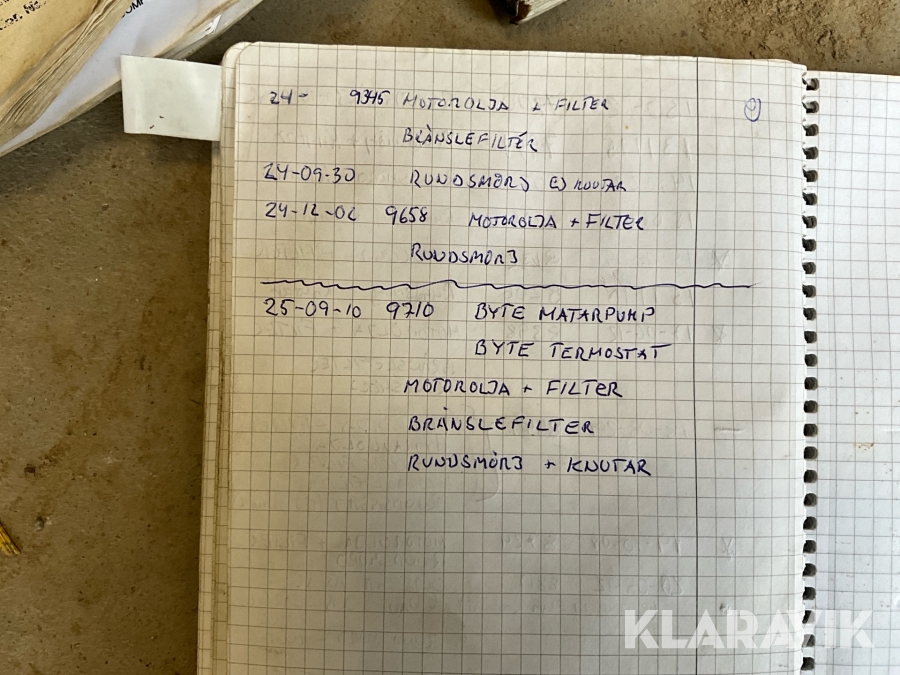 24- 9345 MOTOROLJA + FILTER
BRÄNSLEFILTER
24-09-30 RUNDSMÖRJ EJ KNUTAR
24-12-02 9658 MOTOROLJA + FILTER
RUNDSMÖRJ
25-09-10 9710 BYTE MATARPUMP
BYTE TERMOSTAT
MOTOROLJA + FILTER
BRÄNSLEFILTER
RUNDSMÖRJ + KNUTAR
KLARAVIK